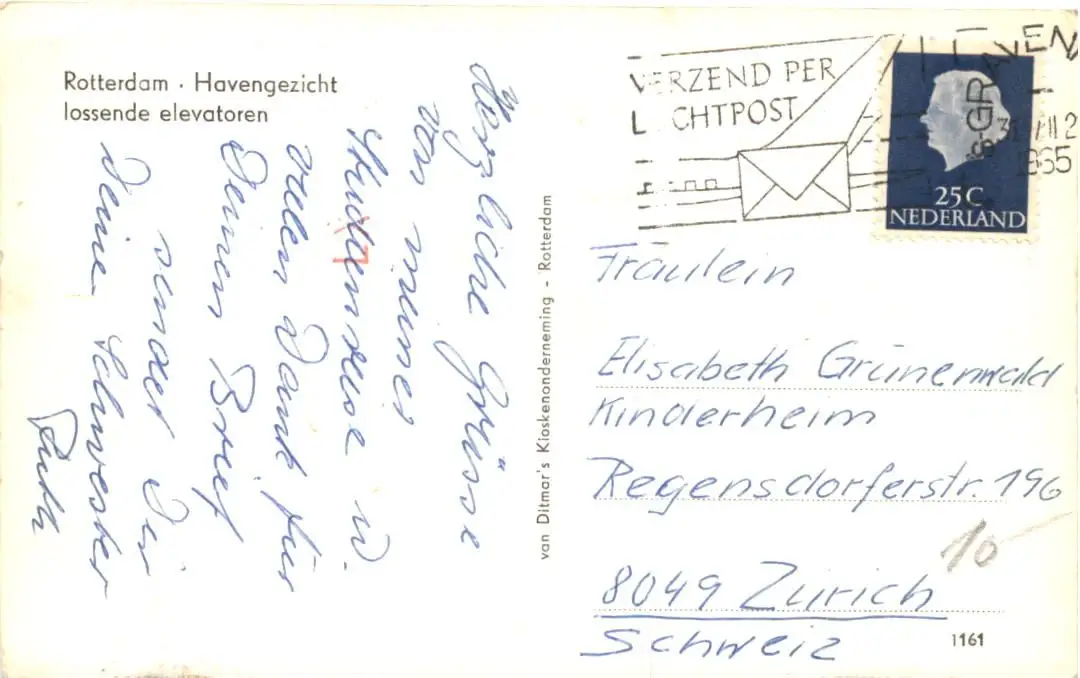 Rotterdam · Havengezicht
lossende elevatoren
Herzliche Grüsse
von meiner
Studienreise u.
vielen Dank für
Deinen Brief
sendet Dir
Deine Schwester
Ruth
van Ditmar's Kioskenonderneming - Rotterdam
VERZEND PER
L CHTPOST
'S-GRAVENHA
1965
25 C
NEDERLAND
Fräulein
Elisabeth Grünenwald
Kinderheim
Regensdorferstr. 196
8049 Zürich
Schweiz
10
1161